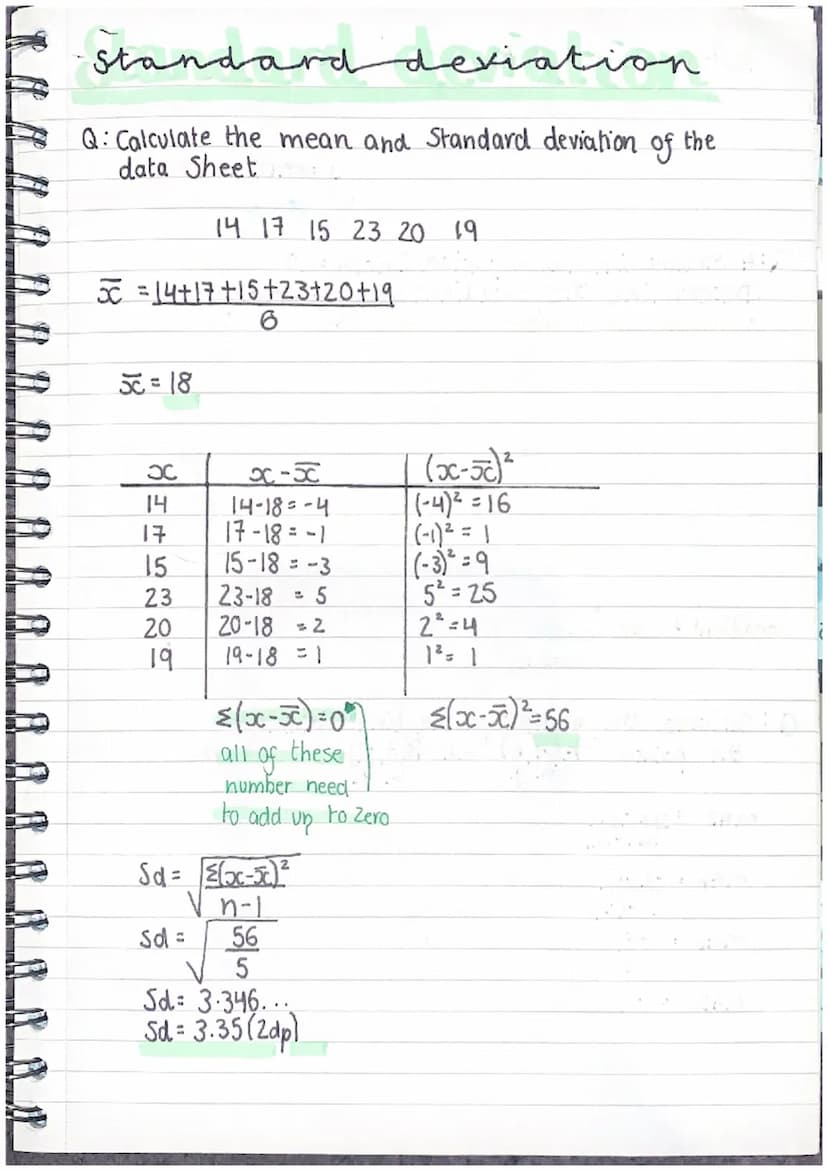 Standard deviation
Q: Calculate the mean and Standard deviation of the
data Sheet
14 17 15 23 20 19
x̄ = 14+17+15+23+20+19
6
x̄ = 18
x x-x̄ (x-x̄)²
14 14-18 = -4 (-4)² = 16
17 17-18 = -1 (-1)² = 1
15 15-18 = -3 (-3)² = 9
23 23-18 = 5 5² = 25
20 20-18 = 2 2² = 4
19 19-18 = 1 1² = 1
Σ(x-x̄) = 0 Σ(x-x̄)² = 56
all of these
number need
to add up to zero
Sd = √Σ(x-x̄)²
n-1
Sd = √56
5
Sd = 3.346...
Sd = 3.35 (2dp)